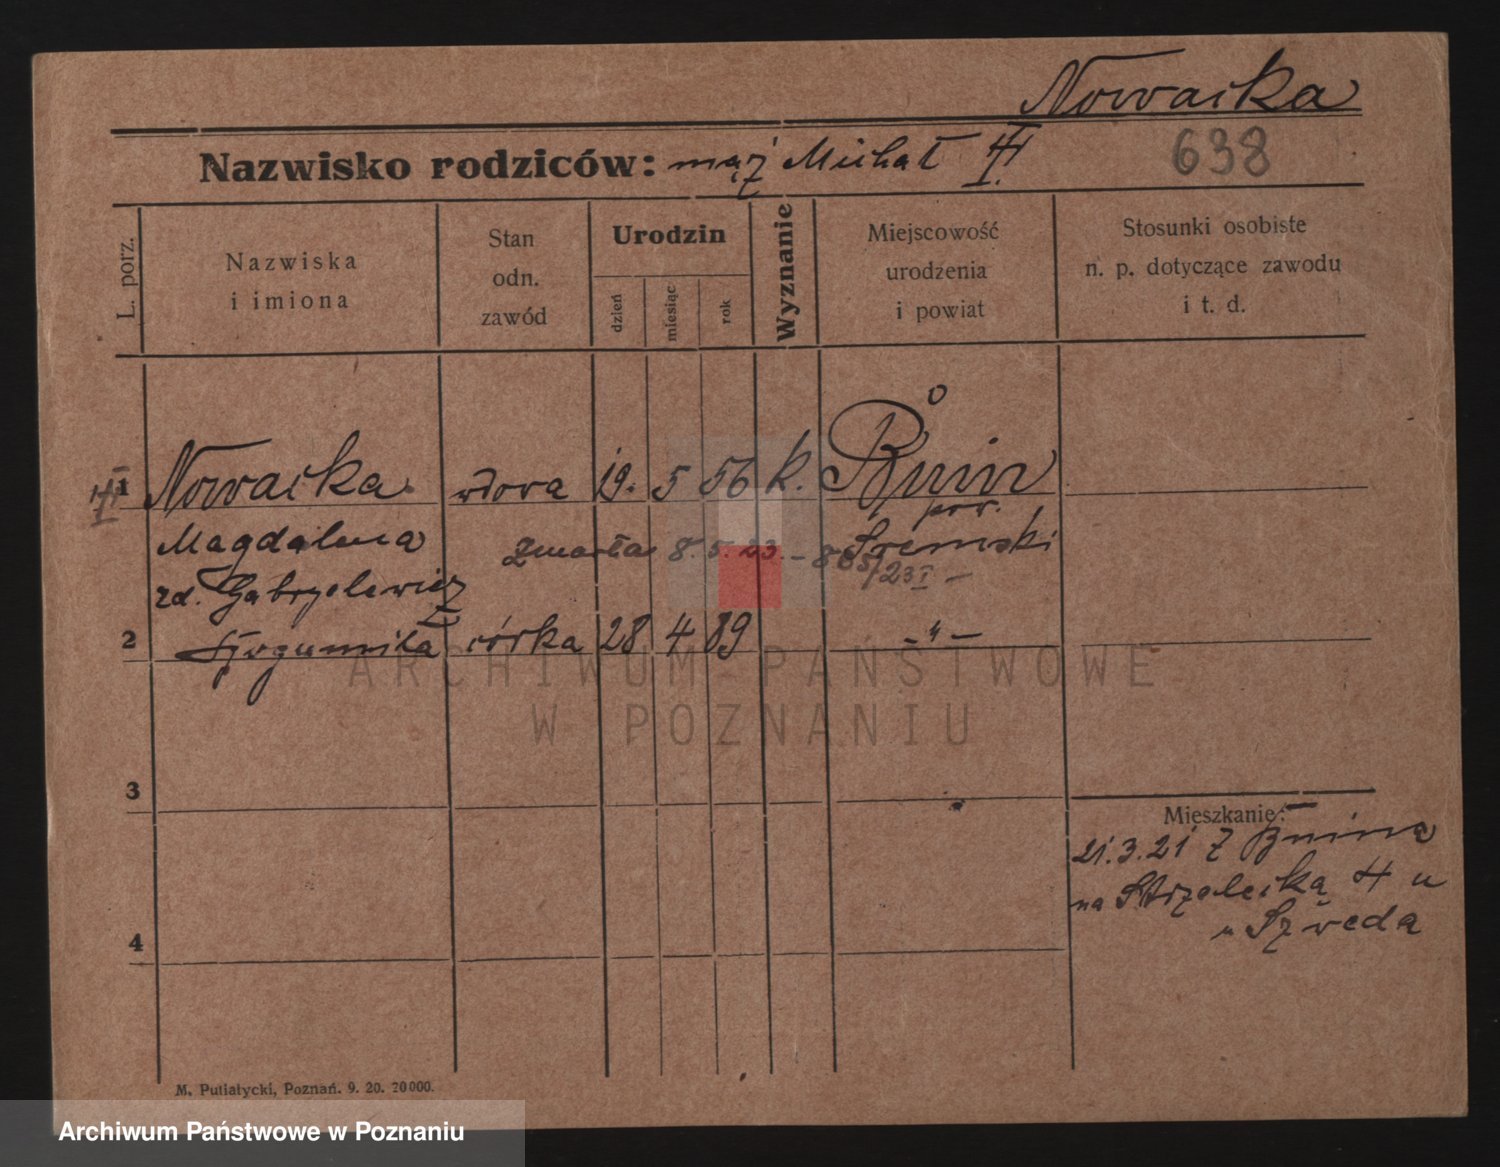 Nowacka
Nazwisko rodziców: mąż Michał
638
L. porz.
Nazwiska
i imiona
Stan
odn.
zawód
Urodzin
dzień
miesiąc
rok
Wyznanie
Miejscowość
urodzenia
i powiat
Stosunki osobiste
n. p. dotyczące zawodu
i t. d.
1 Nowacka wdowa 19. 5 56 k. Bnin
pow.
Magdalena zmarła 8. 5. 23. – 865/23 I – Śremski
zd. Gabryelewicz
2 Bogumiła córka 28 4 89 –"–
3
4
Mieszkanie:
21.3.21 z Bnina
na Strzelecką 4 u
u Szweda
M. Putiatycki, Poznań. 9. 20. 20000.
ARCHIWUM PAŃSTWOWE
W POZNANIU
Archiwum Państwowe w Poznaniu